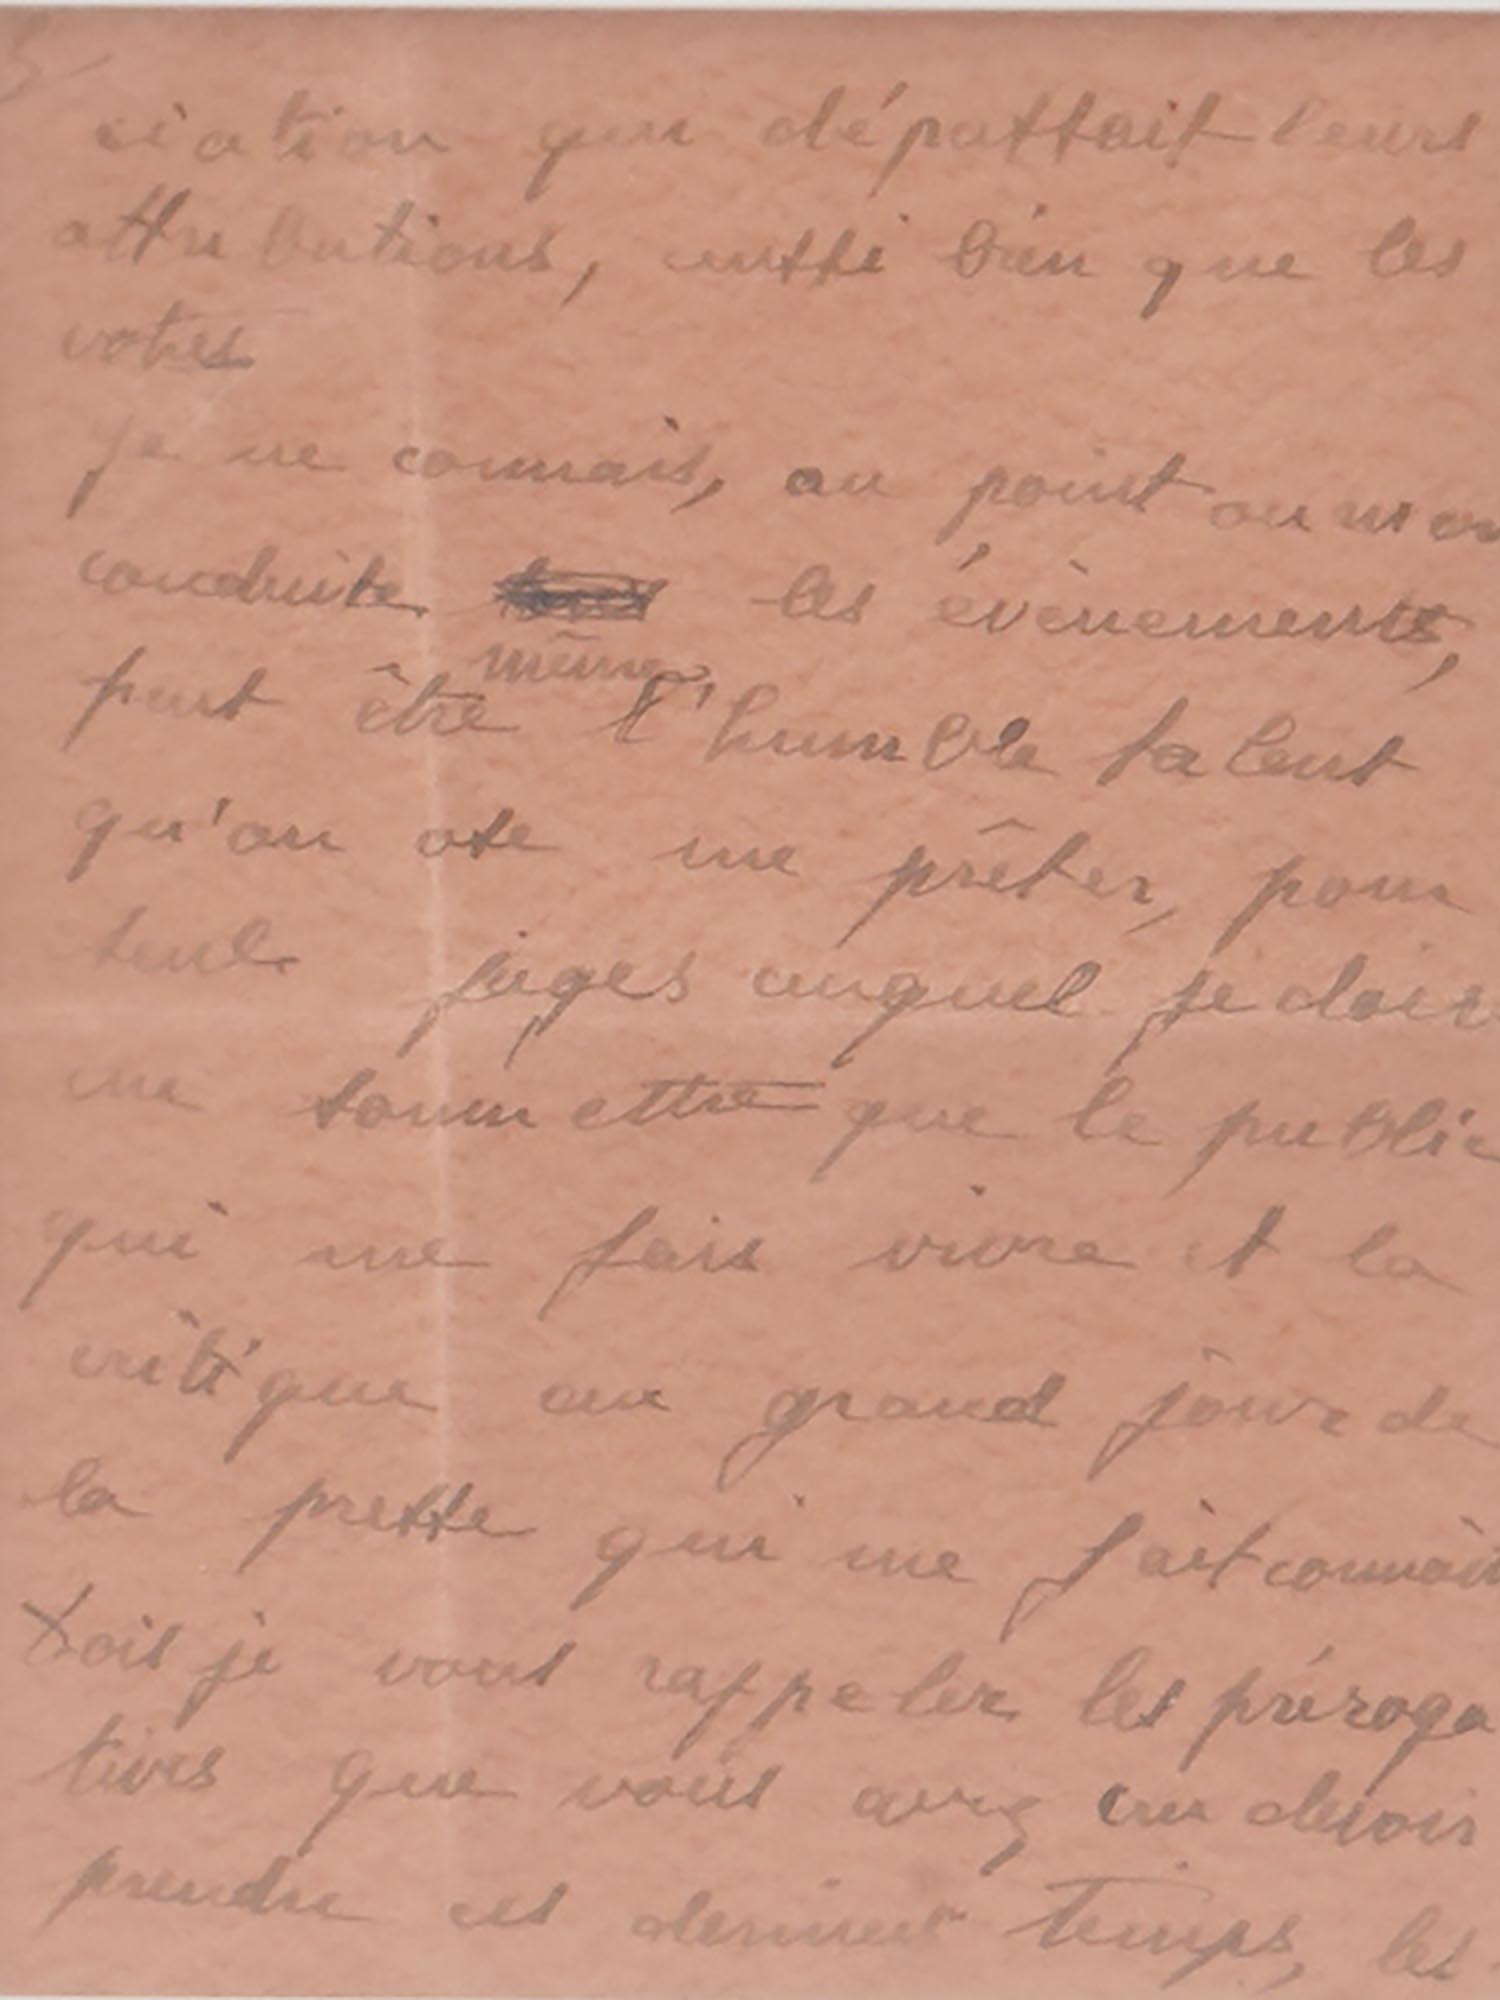 5
ciation qui dépassait leurs
attributions, aussi bien que les
votres
Je ne connais, au point ou m'on
conduite les évènements,
peut être même l'humble talent
qu'on ose me prêter, pour
seul juges auquel je doive
me soumettre que le public
qui me fais vivre et la
critique au grand jour de
la presse qui me fait connait
Dois je vous rappeler les préroga
tives que vous avez cru devoir
prendre ces derniers temps, les